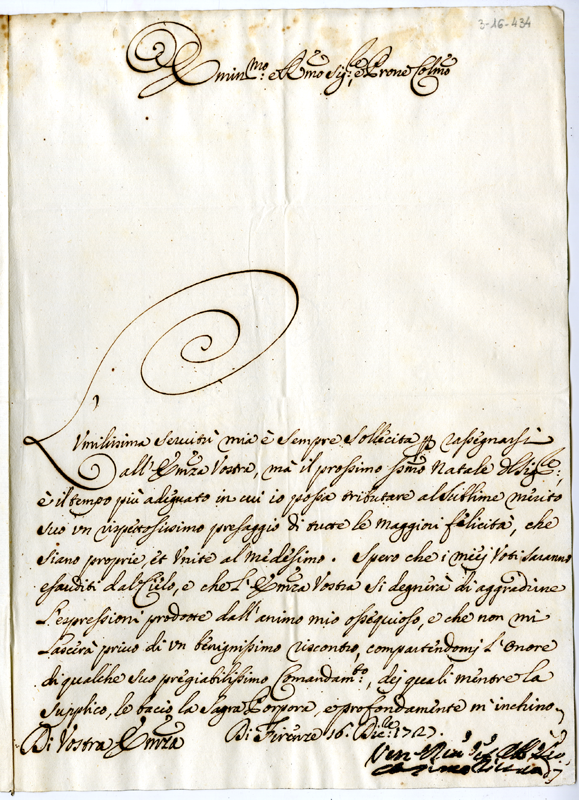 3-16-434
Emin.mo e R.mo Sig.re e Prone Col.mo
L'Umilissima servitù mia è sempre sollecita rassegnarsi
all'Em.za Vostra, mà il prossimo ss.mo Natale del Sig.re
è il tempo più adeguato in cui io possa tributare al sublime merito
suo vn rispettosissimo presaggio di tutte le maggiori felicità, che
siano proprie, et vnite al medesimo. Spero che i miej Voti saranno
esauditi dal Cielo, e che l'Em.za Vostra si degnerà di aggradire
l'espressioni prodotte dall'animo mio ossequioso, e che non mi
lascerà privo di vn benignissimo riscontro, compartendomj l'onore
di qualche suo pregiabilissimo Comandam.to, dej quali mentre la
supplico, le bacio la Sagra Porpora, e profondamente m'inchino
Di Vostra Em.za Di Firenze 16. Dic.bre 1727.